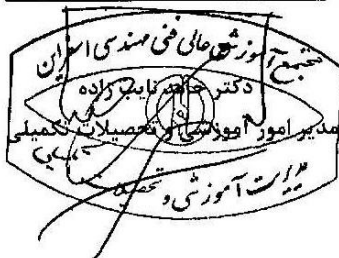 مجتمع آموزش عالی فنی مهندسی اسفراین
دکتر حامد نایب زاده
مدیر امور آموزشی و تحصیلات تکمیلی
مدیریت آموزشی و تحصیلات